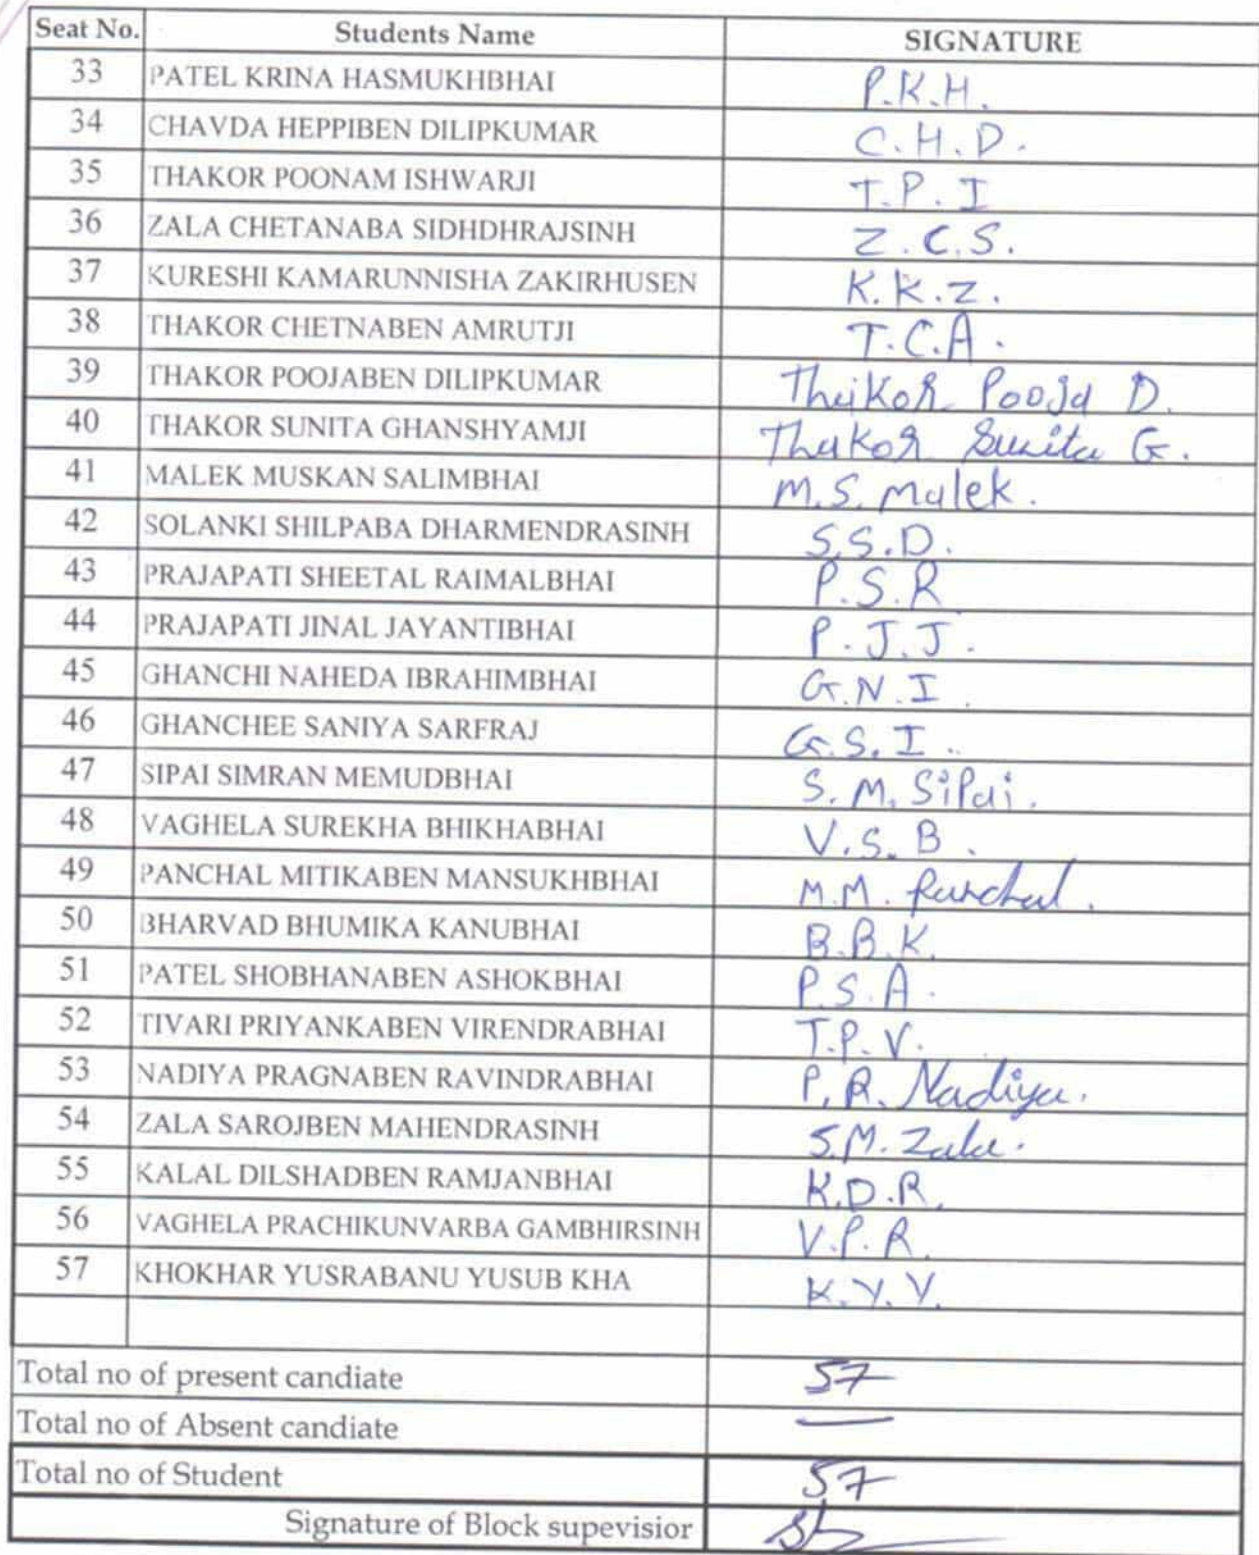 Seat No. Students Name SIGNATURE
33 PATEL KRINA HASMUKHBHAI P.K.H.
34 CHAVDA HEPPIBEN DILIPKUMAR C.H.D.
35 THAKOR POONAM ISHWARJI T.P.I
36 ZALA CHETANABA SIDHDHRAJSINH Z.C.S.
37 KURESHI KAMARUNNISHA ZAKIRHUSEN K.K.Z.
38 THAKOR CHETNABEN AMRUTJI T.C.A.
39 THAKOR POOJABEN DILIPKUMAR Thakor Pooja D.
40 THAKOR SUNITA GHANSHYAMJI Thakor Sunita G.
41 MALEK MUSKAN SALIMBHAI M.S. Malek.
42 SOLANKI SHILPABA DHARMENDRASINH S.S.D.
43 PRAJAPATI SHEETAL RAIMALBHAI P.S.R
44 PRAJAPATI JINAL JAYANTIBHAI P.J.J.
45 GHANCHI NAHEDA IBRAHIMBHAI G.N.I.
46 GHANCHEE SANIYA SARFRAJ G.S.I.
47 SIPAI SIMRAN MEMUDBHAI S.M. Sipai.
48 VAGHELA SUREKHA BHIKHABHAI V.S.B.
49 PANCHAL MITIKABEN MANSUKHBHAI M.M. Panchal.
50 BHARVAD BHUMIKA KANUBHAI B.B.K.
51 PATEL SHOBHANABEN ASHOKBHAI P.S.A.
52 TIVARI PRIYANKABEN VIRENDRABHAI T.P.V.
53 NADIYA PRAGNABEN RAVINDRABHAI P.R. Nadiya.
54 ZALA SAROJBEN MAHENDRASINH S.M. Zala.
55 KALAL DILSHADBEN RAMJANBHAI K.D.R.
56 VAGHELA PRACHIKUNVARBA GAMBHIRSINH V.P.R.
57 KHOKHAR YUSRABANU YUSUB KHA K.Y.Y.
Total no of present candiate 57
Total no of Absent candiate —
Total no of Student 57
Signature of Block supevisior